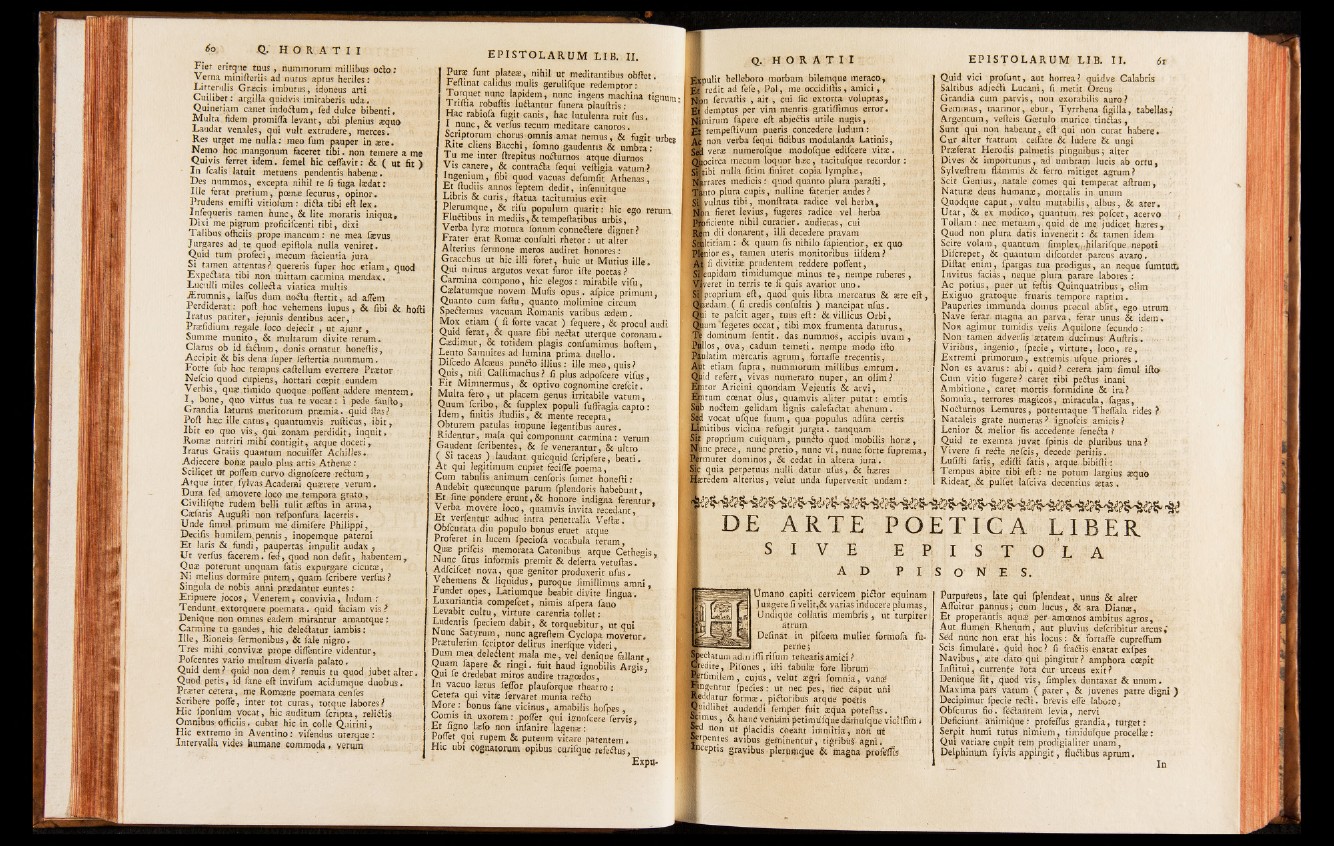 60 Q. HORATII
Fiet eritque tuus, nummorum millibus octo:
Verna miniſteriis ad nutus aptus heriles:
Litterulis Græcis imbutus, idoneus arti
Cuilibet: argilla quidvis imitaberis uda.
Quinetiam canet indoctum, ſed dulce bibenti.
Multa fidem promiſſa levant, ubi plenius æquo
Laudat venales, qui vult extrudere, merces.
Res urget me nulla: meo ſum pauper in ære.
Nemo hoc mangonum faceret tibi. non temere a me
Quivis ferret idem. ſemel hic ceſſavit: & ( ut fit )
In ſcalis latuit metuens pendentis habenæ.
Des nummos, excepta nihil te ſi fuga lædat:
Ille ferat pretium, pœnæ ſecurus, opinor.
Prudens emiſti vitioſum: dicta tibi eſt lex.
Inſequeris tamen hunc, & lite moraris iniqua.
Dixi me pigrum proficiſcenti tibi, dixi
Talibus officiis prope mancum: ne mea ſævus
Jurgares ad te quod epiſtola nulla veniret.
Quid tum profeci, mecum facientia jura
Si tamen attentas? quereris ſuper hoc etiam, quod
Expectata tibi non mittam carmina mendax.
Luculli miles collecta viatica multis
Ærumnis, laſſus dum noctu ſtertit, ad aſſem
Perdiderat: poſt hoc vehemens lupus, & ſibi & hoſti
Iratus pariter, jejunis dentibus acer,
Præſidium regale loco dejecit, ut ajunt,
Summe munito, & multarum divite rerum.
Clarus ob id factum, donis ornatur honeſtis,
Accipit & bis dena ſuper ſeſtertia nummum.
Forte ſub hoc tempus caſtellum evertere Prætor
Neſcio quod cupiens, hortari cœpit eundem
Verbis, quæ timido quoque poſſent addere mentem.
I, bone, quo virtus tua te vocat: i pede fauſto,
Grandia laturus meritorum præmia. quid ſtas?
Poſt hæc ille catus, quantumvis ruſticus, ibit,
Ibit eo quo vis, qui zonam perdidit, inquit.
Romæ nutriri mihi contigit, atque doceri,
Iratus Graiis quantum nocuiſſet Achilles.
Adjecere bonæ paulo plus artis Athenæ:
Scilicet ut poſſem curvo dignoſcere rectum,
Atque inter ſylvas Academi quærere verum.
Dura ſed amovere loco me tempora grato,
Civiliſque rudem belli tulit æſtus in arma,
Cæſaris Auguſti non reſponſura lacertis.
Unde ſimul primum me dimiſere Philippi,
Deciſis humilem pennis, inopemque paterni
Et laris & fundi, paupertas impulit audax,
Ut verſus facerem. ſed, quod non deſit, habentem,
Quæ poterunt unquam ſatis expurgare cicutæ,
Ni melius dormire putem, quam ſcribere verſus?
Singula de nobis anni prædantur euntes:
Eripuere jocos, Venerem, convivia, ludum:
Tendunt extorquere poemata. quid faciam vis?
Denique non omnes eadem mirantur amantque:
Carmine tu gaudes, hic delectatur iambis:
Ille, Bioneis ſermonibus, & ſale nigro.
Tres mihi convivæ prope diſſentire videntur,
Poſcentes vario multum diverſa palato.
Quid dem? quid non dem? renuis tu quod jubet alter.
Quod petis, id ſane eſt inviſum acidumque duobus.
Præter cetera, me Romæne poemata cenſes
Scribere poſſe, inter tot curas, totque labores?
Hic ſponſum vocat, hic auditum ſcripta, relictis
Omnibus officiis. cubat hic in colle Quirini,
Hic extremo in Aventino: viſendus uterque:
Intervalla vides humane commoda, verum
EPISTOLARUM LIB. II.
Puræ ſunt plateæ, nihil ut meditantibus obſtet.
Feſtinat calidus mulis geruliſque redemptor:
Torquet nunc lapidem, nunc ingens machina tignum:
Triſtia robuſtis luctantur funera plauſtris:
Hac rabioſa fugit canis, hac lutulenta ruit ſus.
I nunc, & verſus tecum meditare canoros.
Scriptorum chorus omnis amat nemus, & fugit urbes
Rite cliens Bacchi, ſomno gaudentis & umbra:
Tu me inter ſtrepitus nocturnos atque diurnos
Vis canere, & contracta ſequi veſtigia vatum?
Ingenium, ſibi quod vacuas deſumſit Athenas,
Et ſtudiis annos ſeptem dedit, inſenuitque
Libris & curis, ſtatua taciturnius exit
Plerumque, & riſu populum quatit: hic ego rerum
Fluctibus in mediis, & tempeſtatibus urbis,
Verba lyræ motura ſonum connectere digner?
Frater erat Romæ conſulti rhetor: ut alter
Alterius ſermone meros audiret honores:
Gracchus ut hic illi foret, huic ut Mutius ille.
Qui minus argutos vexat furor iſte poetas?
Carmina compono, hic elegos: mirabile viſu,
Cælatumque novem Muſis opus. aſpice primum,
Quanto cum faſtu, quanto molimine circum
Spectemus vacuam Romanis vatibus ædem.
Mox etiam ( ſi forte vacat ) ſequere, & procul audi
Quid ferat, & quare ſibi nectat uterque coronam.
Cædimur, & totidem plagis conſumimus hoſtem,
Lento Samnites ad lumina prima duello.
Diſcedo Alcæus puncto illius: ille meo, quis?
Quis, niſi Callimachus? ſi plus adpoſcere viſus,
Fit Mimnermus, & optivo cognomine creſcit.
Multa fero, ut placem genus irritabile vatum,
Quum ſcribo, & ſupplex populi ſuffragia capto:
Idem, finitis ſtudiis, & mente recepta,
Obturem patulas impune legentibus aures.
Ridentur, mala qui componunt carmina: verum
Gaudent ſcribentes, & ſe venerantur, & ultro
( Si taceas ) laudant quicquid ſcripſere, beati.
At qui legitimum cupiet feciſſe poema,
Cum tabulis animum cenſoris ſumet honeſti:
Audebit quæcunque parum ſplendoris habebunt,
Et ſine pondere erunt, & honore indigna ferentur,
Verba movere loco, quamvis invita recedant,
Et verſentur adhuc intra penetralia Veſtæ.
Obſcurata diu populo bonus eruet atque
Proferet in lucem ſpecioſa vocabula rerum,
Quæ priſcis memorata Catonibus atque Cethegis,
Nunc ſitus informis premit & deſerta vetuſtas.
Adſciſcet nova, quæ genitor produxerit uſus.
Vehemens & liquidus, puroque ſimillimus amni,
Fundet opes, Latiumque beabit divite lingua.
Luxuriantia compeſcet, nimis aſpera ſano
Levabit cultu, virtute carentia tollet:
Ludentis ſpeciem dabit, & torquebitur, ut qui
Nunc Satyrum, nunc agreſtem Cyclopa movetur.
Prætulerim ſcriptor delirus inerſque videri,
Dum mea delectent mala me, vel denique fallant,
Quam ſapere & ringi. fuit haud ignobilis Argis,
Qui ſe credebat miros audire tragœdos,
In vacuo lætus ſeſſor plauſorque theatro:
Cetera qui vitæ ſervaret munia recto
More: bonus ſane vicinus, amabilis hoſpes,
Comis in uxorem: poſſet qui ignoſcere ſervis,
Et ſigno læſo non inſanire lagenæ:
Poſſet qui rupem & puteum vitare patentem.
Hic ubi cognatorum opibus curiſque refectus,
Expu-
Q. HORATII
Expulit helleboro morbum bilemque meraco,
Et redit ad ſeſe, Pol, me occidiſtis, amici,
Non ſervaſtis, ait, cui ſic extorta voluptas,
Et demptus per vim mentis gratiſſimus error.
Nimirum ſapere eſt abjectis utile nugis,
Et tempeſtivum pueris concedere ludum:
Ac non verba ſequi fidibus modulanda Latinis,
Sed veræ numeroſque modoſque ediſcere vitæ.
Quocirca mecum loquor hæc, tacituſque recordor:
Si tibi nulla ſitim finiret copia lymphæ,
Narrares medicis: quod quanto plura paraſti,
Tanto plura cupis, nulline faterier audes?
Si vulnus tibi, monſtrata radice vel herba,
Non fieret levius, fugeres radice vel herba
Proficiente nihil curarier. audieras, cui
Rem dii donarent, illi decedere pravam
Stultitiam: & quum ſis nihilo ſapientior, ex quo
Plenior es, tamen uteris monitoribus iiſdem?
At ſi divitiæ prudentem reddere poſſent,
Si cupidum timidumque minus te, nempe ruberes,
Viveret in terris te ſi quis avarior uno.
Si proprium eſt, quod quis libra mercatus & ære eſt,
Quædam ( ſi credis conſultis ) mancipat uſus,
Qui te paſcit ager, tuus eſt: & villicus Orbi,
Quum ſegetes occat, tibi mox frumenta daturus,
Te dominum ſentit. das nummos, accipis uvam,
Pullos, ova, cadum temeti. nempe modo iſto
Paulatim mercaris agrum, fortaſſe trecentis,
Aut etiam ſupra, nummorum millibus emtum.
Quid refert, vivas numerato nuper, an olim?
Emtor Aricini quondam Vejentis & arvi,
Emtum cœnat olus, quamvis aliter putat: emtis
Sub noctem gelidam lignis calefactat ahenum.
Sed vocat uſque ſuum, qua populus adſita certis
Limitibus vicina refugit jurgia. tanquam
Sit proprium cuiquam, puncto quod mobilis horæ,
Nunc prece, nunc pretio, nunc vi, nunc ſorte ſuprema,
Permutet dominos, & cedat in altera jura.
Sic quia perpetuus nulli datur uſus, & hæres
Hæredem alterius, velut unda ſupervenit undam:
EPISTOLARUM LIB. II. 61
Quid vici proſunt, aut horrea? quidve Calabris
Saltibus adjecti Lucani, ſi metit Orcus
Grandia cum parvis, non exorabilis auro?
Gemmas, marmor, ebur, Tyrrhena ſigilla, tabellas,
Argentum, veſteis Gætulo murice tinctas,
Sunt qui non habeant, eſt qui non curat habere.
Cur alter fratrum ceſſare & ludere & ungi
Præferat Herodis palmetis pinguibus; alter
Dives & importunus, ad umbram lucis ab ortu,
Sylveſtrem flammis & ferro mitiget agrum?
Scit Genius, natale comes qui temperat aſtrum,
Naturæ deus humanæ, mortalis in unum
Quodque caput, vultu mutabilis, albus, & ater.
Utar, & ex modico, quantum res poſcet, acervo
Tollam: nec metuam, quid de me judicet hæres,
Quod non plura datis invenerit: & tamen idem
Scire volam, quantum ſimplex hilariſque nepoti
Diſcrepet, & quantum diſcordet parcus avaro.
Diſtat enim, ſpargas tua prodigus, an neque ſumtum
Invitus facias, neque plura parare labores:
Ac potius, puer ut feſtis Quinquatribus, olim
Exiguo gratoque fruaris tempore raptim.
Pauperies immunda domus procul abſit, ego utrum
Nave ferar magna an parva, ferar unus & idem.
Non agimur tumidis velis Aquilone ſecundo:
Non tamen adverſis ætatem ducimus Auſtris.
Viribus, ingenio, ſpecie, virtute, loco, re,
Extremi primorum, extremis uſque priores.
Non es avarus: abi. quid? cetera jam ſimul iſto
Cum vitio fugere? caret tibi pectus inani
Ambitione, caret mortis formidine & ira?
Somnia, terrores magicos, miracula, ſagas,
Nocturnos Lemures, portentaque Theſſala rides?
Nataleis grate numeras? ignoſcis amicis?
Lenior & melior fis accedente ſenecta?
Quid te exemta juvat ſpinis de pluribus una?
Vivere ſi recte neſcis, decede peritis.
Luſiſti ſatis, ediſti ſatis, atque bibiſti:
Tempus abire tibi eſt: ne potum largius æquo
Rideat, & pulſet laſciva decentius ætas.
DE ARTE POETICA LIBER
SIVE EPISTOLA
AD PISONES.
Humano capiti cervicem pictor equinam
Jungere ſi velit, & varias inducere plumas,
Undique collatis membris, ut turpiter
atrum
Deſinat in piſcem mulier formoſa ſu-
perne;
Spectatum admiſſi riſum teneatis amici?
Credite, Piſones, iſti tabulæ fore librum
Perſimilem, cujus, velut ægri ſomnia, vanæ
Fingentur ſpecies: ut nec pes, nec caput uni
Reddatur formæ. pictoribus atque poetis
Quidlibet audendi ſemper fuit æqua poteſtas.
Scimus, & hanc veniam petimuſque damuſque viciſſim:
Sed non ut placidis coeant immitia, non ut
Serpentes avibus geminentur, tigribus agni.
Inceptis gravibus plerumque & magna profeſſis
Purpureus, late qui ſplendeat, unus & alter
Aſſuitur pannus; cum lucus, & ara Dianæ,
Et properantis aquæ per amœnos ambitus agros,
Aut flumen Rhenum, aut pluvius deſcribitur arcus,
Sed nunc non erat his locus: & fortaſſe cupreſſum
Scis ſimulare. quid hoc? ſi fractis enatat exſpes
Navibus, ære dato qui pingitur? amphora cœpit
Inſtitui, currente rota cur urceus exit?
Denique ſit, quod vis, ſimplex duntaxat & unum.
Maxima pars vatum ( pater, & juvenes patre digni )
Decipimur ſpecie recti. brevis eſſe laboro,
Obſcurus fio. ſectantem levia, nervi
Deficiunt animique: profeſſus grandia, turget:
Serpit humi tutus nimium, timiduſque procellæ:
Qui variare cupit rem prodigialiter unam,
Delphinum ſylvis appingit, fluctibus aprum.
In